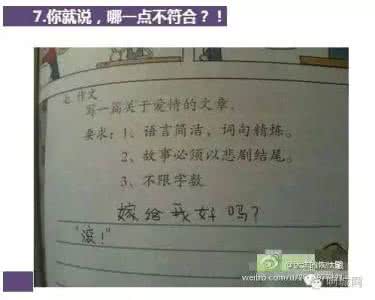 7.你就说，哪一点不符合？！
七.作文
写一篇关于爱情的文章。
要求：1、语言简洁，词句精炼。
2、故事必须以悲剧结尾。
3、不限字数
嫁给我好吗？
“滚！”